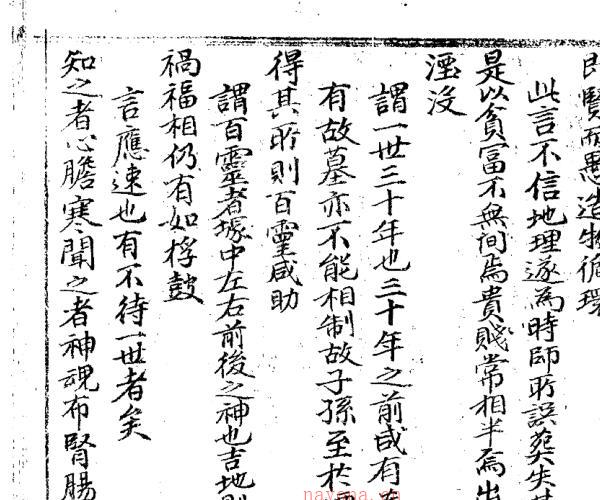 即賢而愚造物循環
此言不信地理遂為時師所誤葬失
是以貧富不無间焉貴賤常相半焉出
湮没
謂一世三十年也三十年之前或有
有故墓亦不能相制故子孫至扵
得其所則百靈咸助
謂百靈者塚中左右前後之神也吉地則
禍福相仍有如桴鼓
言應速也有不待一世者矣
知之者心膽寒聞之者神魂布腎腸
nayona.cn